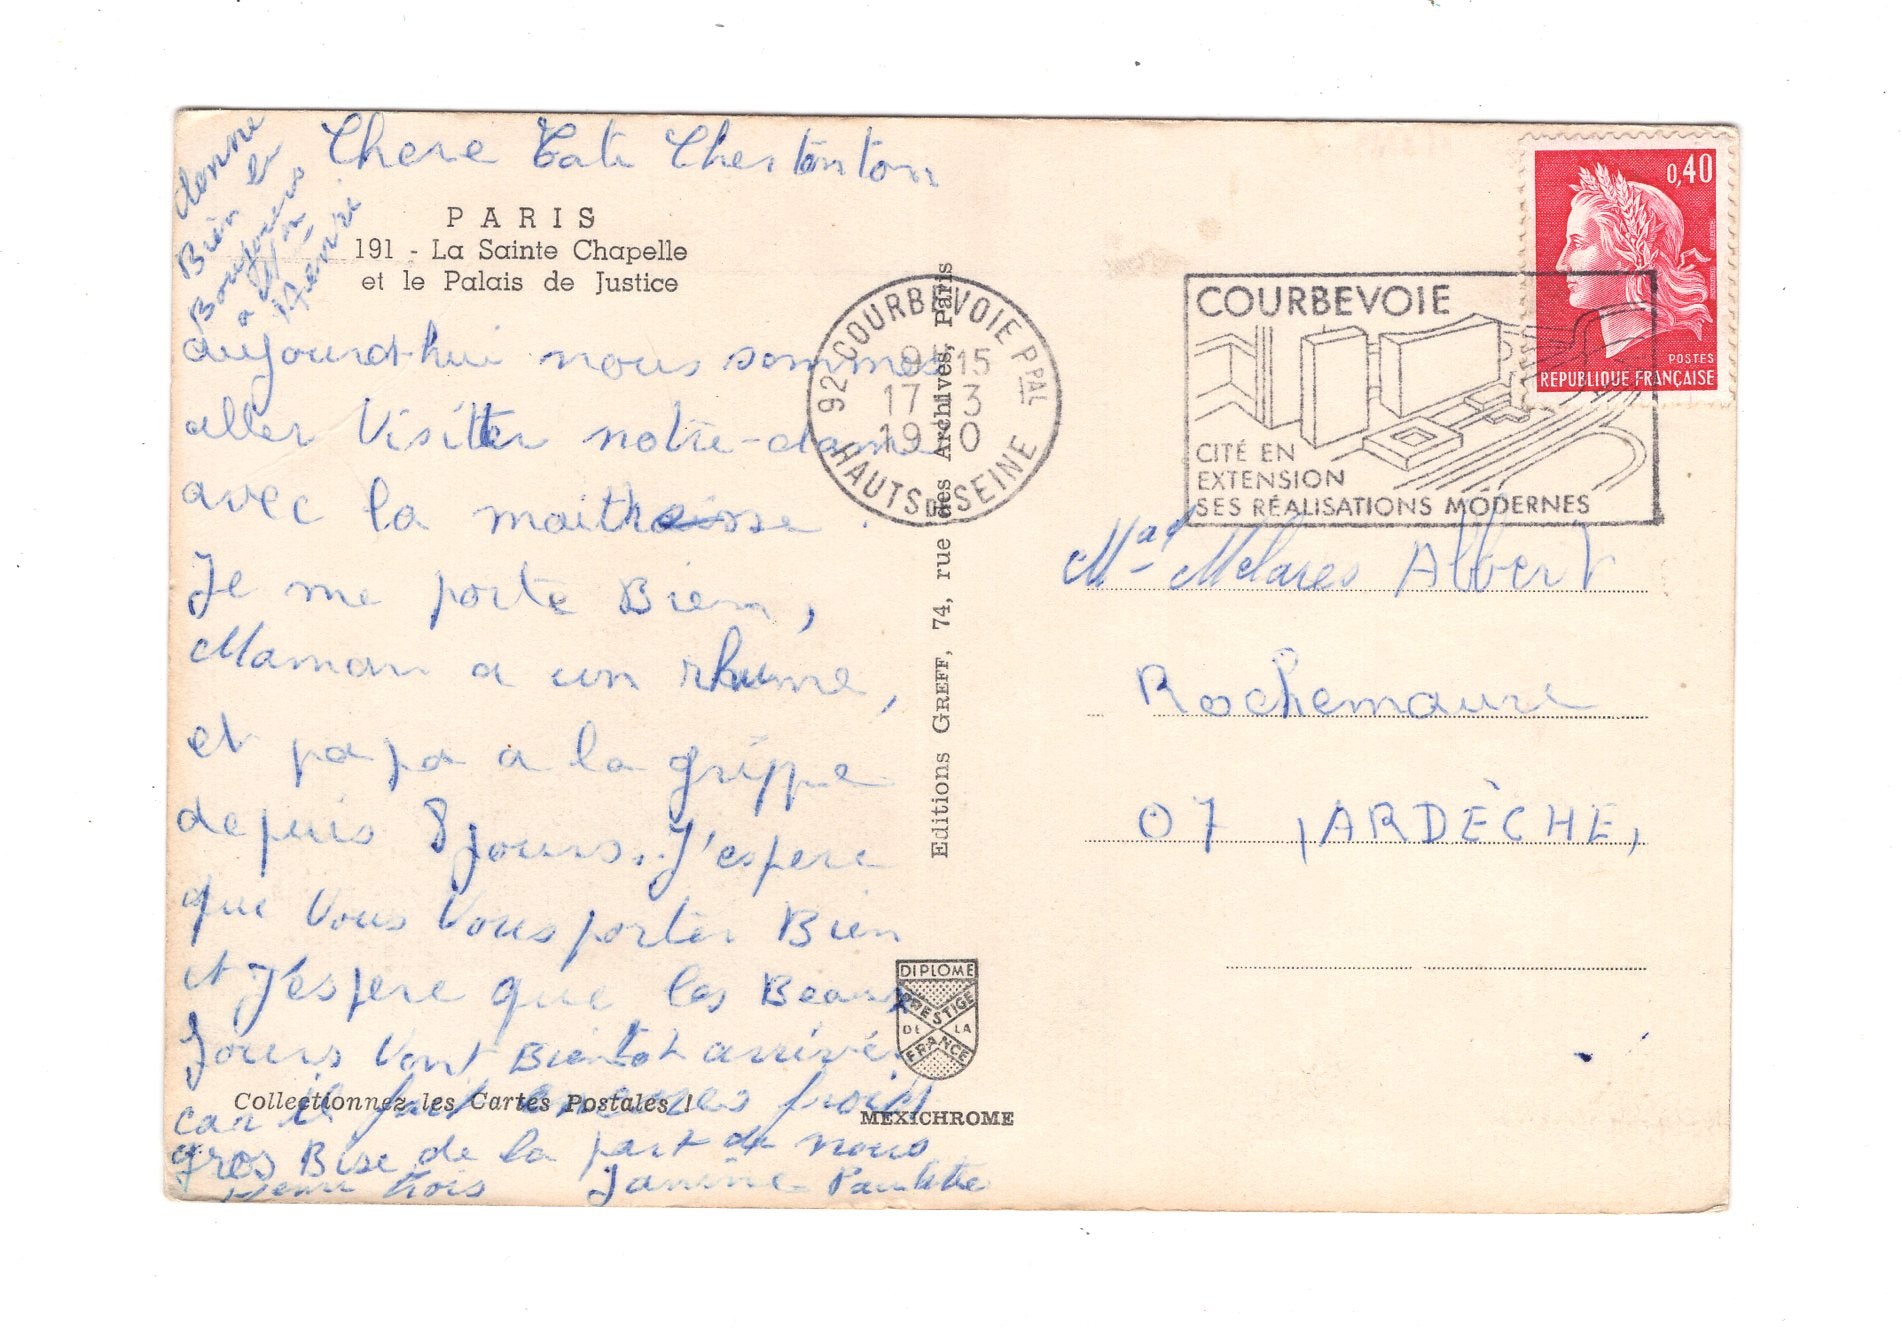 Chere Tati Cher tonton
PARIS
191 - La Sainte Chapelle
et le Palais de Justice
aujourd-hui nous sommes
aller Visitter notre-dame
avec la
Je me porte Bien,
Maman a un rhume,
et papa a la grippe
depuis 8 jours. J'espere
que Vous Vous porter Bien
et J'espere que les Beaux
Jours Vont Bientot arrivér
car il fait encores froid
gros Bise de la part de nous
trois Janine Paulette
donne
Bien le
Bonjours
a
Henri
Collectionnez les Cartes Postales !
MEXICHROME
DIPLOME
PRESTIGE
DE LA
FRANCE
Editions GREFF, 74, rue des Archives, Paris
92 COURBEVOIE PPAL
15
17 3
19 0
HAUTS DE SEINE
COURBEVOIE
CITÉ EN
EXTENSION
SES RÉALISATIONS MODERNES
0,40
POSTES
REPUBLIQUE FRANÇAISE
Mad Albert
Rochemaure
07 ARDÈCHE,